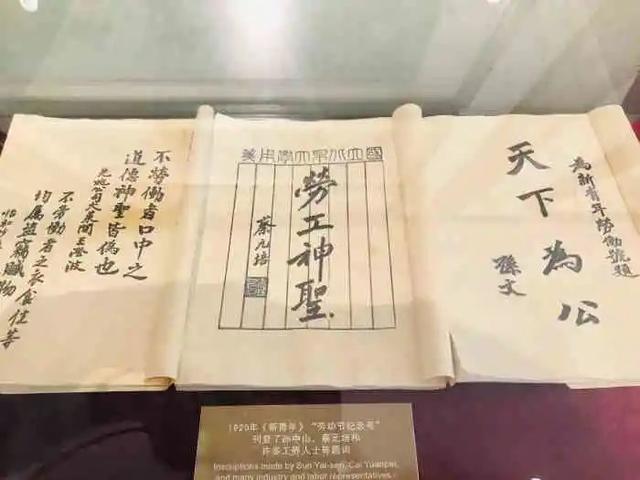 為新青年勞働號題
天下為公
孫文
國立北京大學用箋
勞工神聖
蔡元培
不勞働者口中之
道德神聖皆偽也
不勞働者之衣食住等
均屬盜竊贓物
1920年《新青年》“劳动节纪念号”
刊登了孙中山、蔡元培和
许多工界人士等题词
Inscriptions made by Sun Yat-sen, Cai Yuanpei,
and many industry and labor representatives